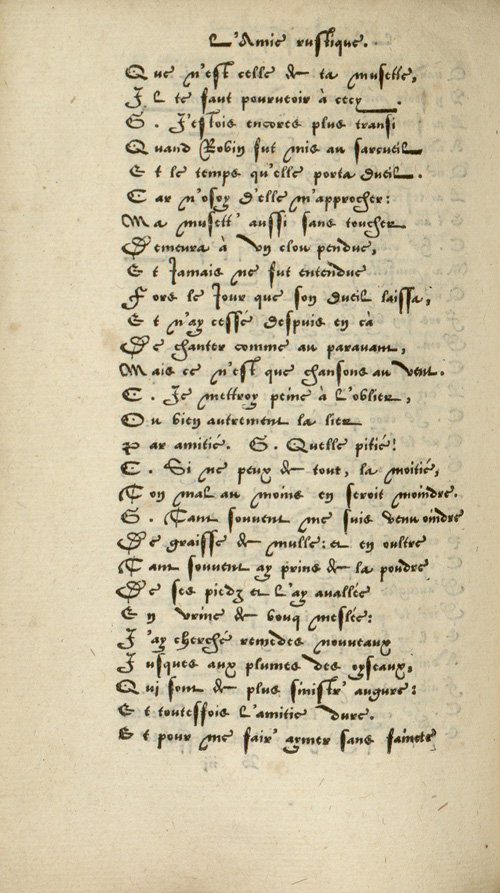 L'Amie rustique.
Que n'est celle de ta musette,
Il te faut pourveoir à cecy.
G. J'estois encores plus transi
Quand Robin fut mis au sarcueil
Et le temps qu'elle porta dueil.
Car n'osoy d'elle m'approcher:
Ma musett' aussi sans toucher
Demeura à un clou pendue,
Et Jamais ne fut entendue
Fors le Jour que son dueil laissa,
Et n'ay cessé despuis en çà
De chanter comme au paravant,
Mais ce n'est que chansons au vent.
C. Je mettroy peine à L'oblier,
Ou bien autrement la lier
Par amitié. G. Quelle pitié!
C. Si ne peux de tout, la moitié,
Ton mal au moins en seroit moindre.
G. Tant souvent me suis venu oindre
De graisse de mulle: et en oultre
Tant souvent ay prins de la poudre
De ses piedz et L'ay avallée
En vrine de bouq meslée:
J'ay cherché remedes nouveaux
Jusques aux plumes des oyseaux,
Qui sont de plus sinistr' augure:
Et toutesfois L'amitié dure.
Et pour me fair' aymer sans faincte